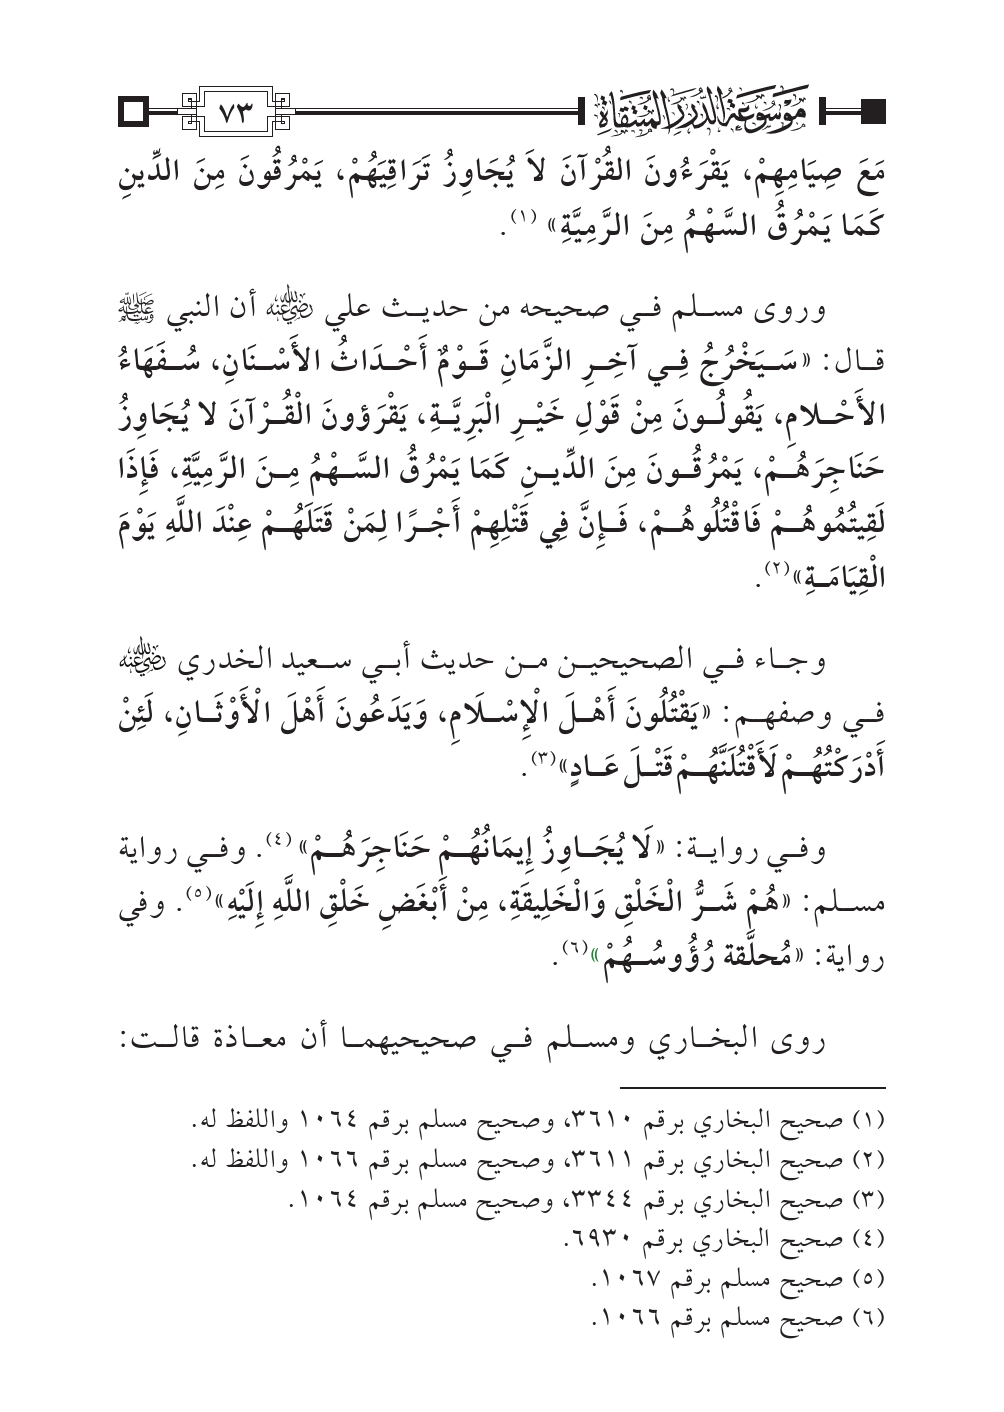 موسوعة الدرر المنتقاة
٧٣
مَعَ صِيَامِهِمْ، يَقْرَءُونَ القُرْآنَ لاَ يُجَاوِزُ تَرَاقِيَهُمْ، يَمْرُقُونَ مِنَ الدِّينِ
كَمَا يَمْرُقُ السَّهْمُ مِنَ الرَّمِيَّةِ» (١).
وروى مسلم في صحيحه من حديث علي رضي الله عنه أن النبي ﷺ
قال: «سَيَخْرُجُ فِي آخِرِ الزَّمَانِ قَوْمٌ أَحْدَاثُ الأَسْنَانِ، سُفَهَاءُ
الأَحْلامِ، يَقُولُونَ مِنْ قَوْلِ خَيْرِ الْبَرِيَّةِ، يَقْرَؤونَ الْقُرْآنَ لا يُجَاوِزُ
حَنَاجِرَهُمْ، يَمْرُقُونَ مِنَ الدِّينِ كَمَا يَمْرُقُ السَّهْمُ مِنَ الرَّمِيَّةِ، فَإِذَا
لَقِيتُمُوهُمْ فَاقْتُلُوهُمْ، فَإِنَّ فِي قَتْلِهِمْ أَجْرًا لِمَنْ قَتَلَهُمْ عِنْدَ اللَّهِ يَوْمَ
الْقِيَامَةِ»(٢).
وجاء في الصحيحين من حديث أبي سعيد الخدري رضي الله عنه
في وصفهم: «يَقْتُلُونَ أَهْلَ الْإِسْلَامِ، وَيَدَعُونَ أَهْلَ الْأَوْثَانِ، لَئِنْ
أَدْرَكْتُهُمْ لَأَقْتُلَنَّهُمْ قَتْلَ عَادٍ»(٣).
وفي رواية: «لَا يُجَاوِزُ إِيمَانُهُمْ حَنَاجِرَهُمْ» (٤). وفي رواية
مسلم: «هُمْ شَرُّ الْخَلْقِ وَالْخَلِيقَةِ، مِنْ أَبْغَضِ خَلْقِ اللَّهِ إِلَيْهِ»(٥). وفي
رواية: «مُحلَّقة رُؤُوسُهُمْ»(٦).
روى البخاري ومسلم في صحيحيهما أن معاذة قالت:
(١) صحيح البخاري برقم ٣٦١٠، وصحيح مسلم برقم ١٠٦٤ واللفظ له.
(٢) صحيح البخاري برقم ٣٦١١، وصحيح مسلم برقم ١٠٦٦ واللفظ له.
(٣) صحيح البخاري برقم ٣٣٤٤، وصحيح مسلم برقم ١٠٦٤.
(٤) صحيح البخاري برقم ٦٩٣٠.
(٥) صحيح مسلم برقم ١٠٦٧.
(٦) صحيح مسلم برقم ١٠٦٦.